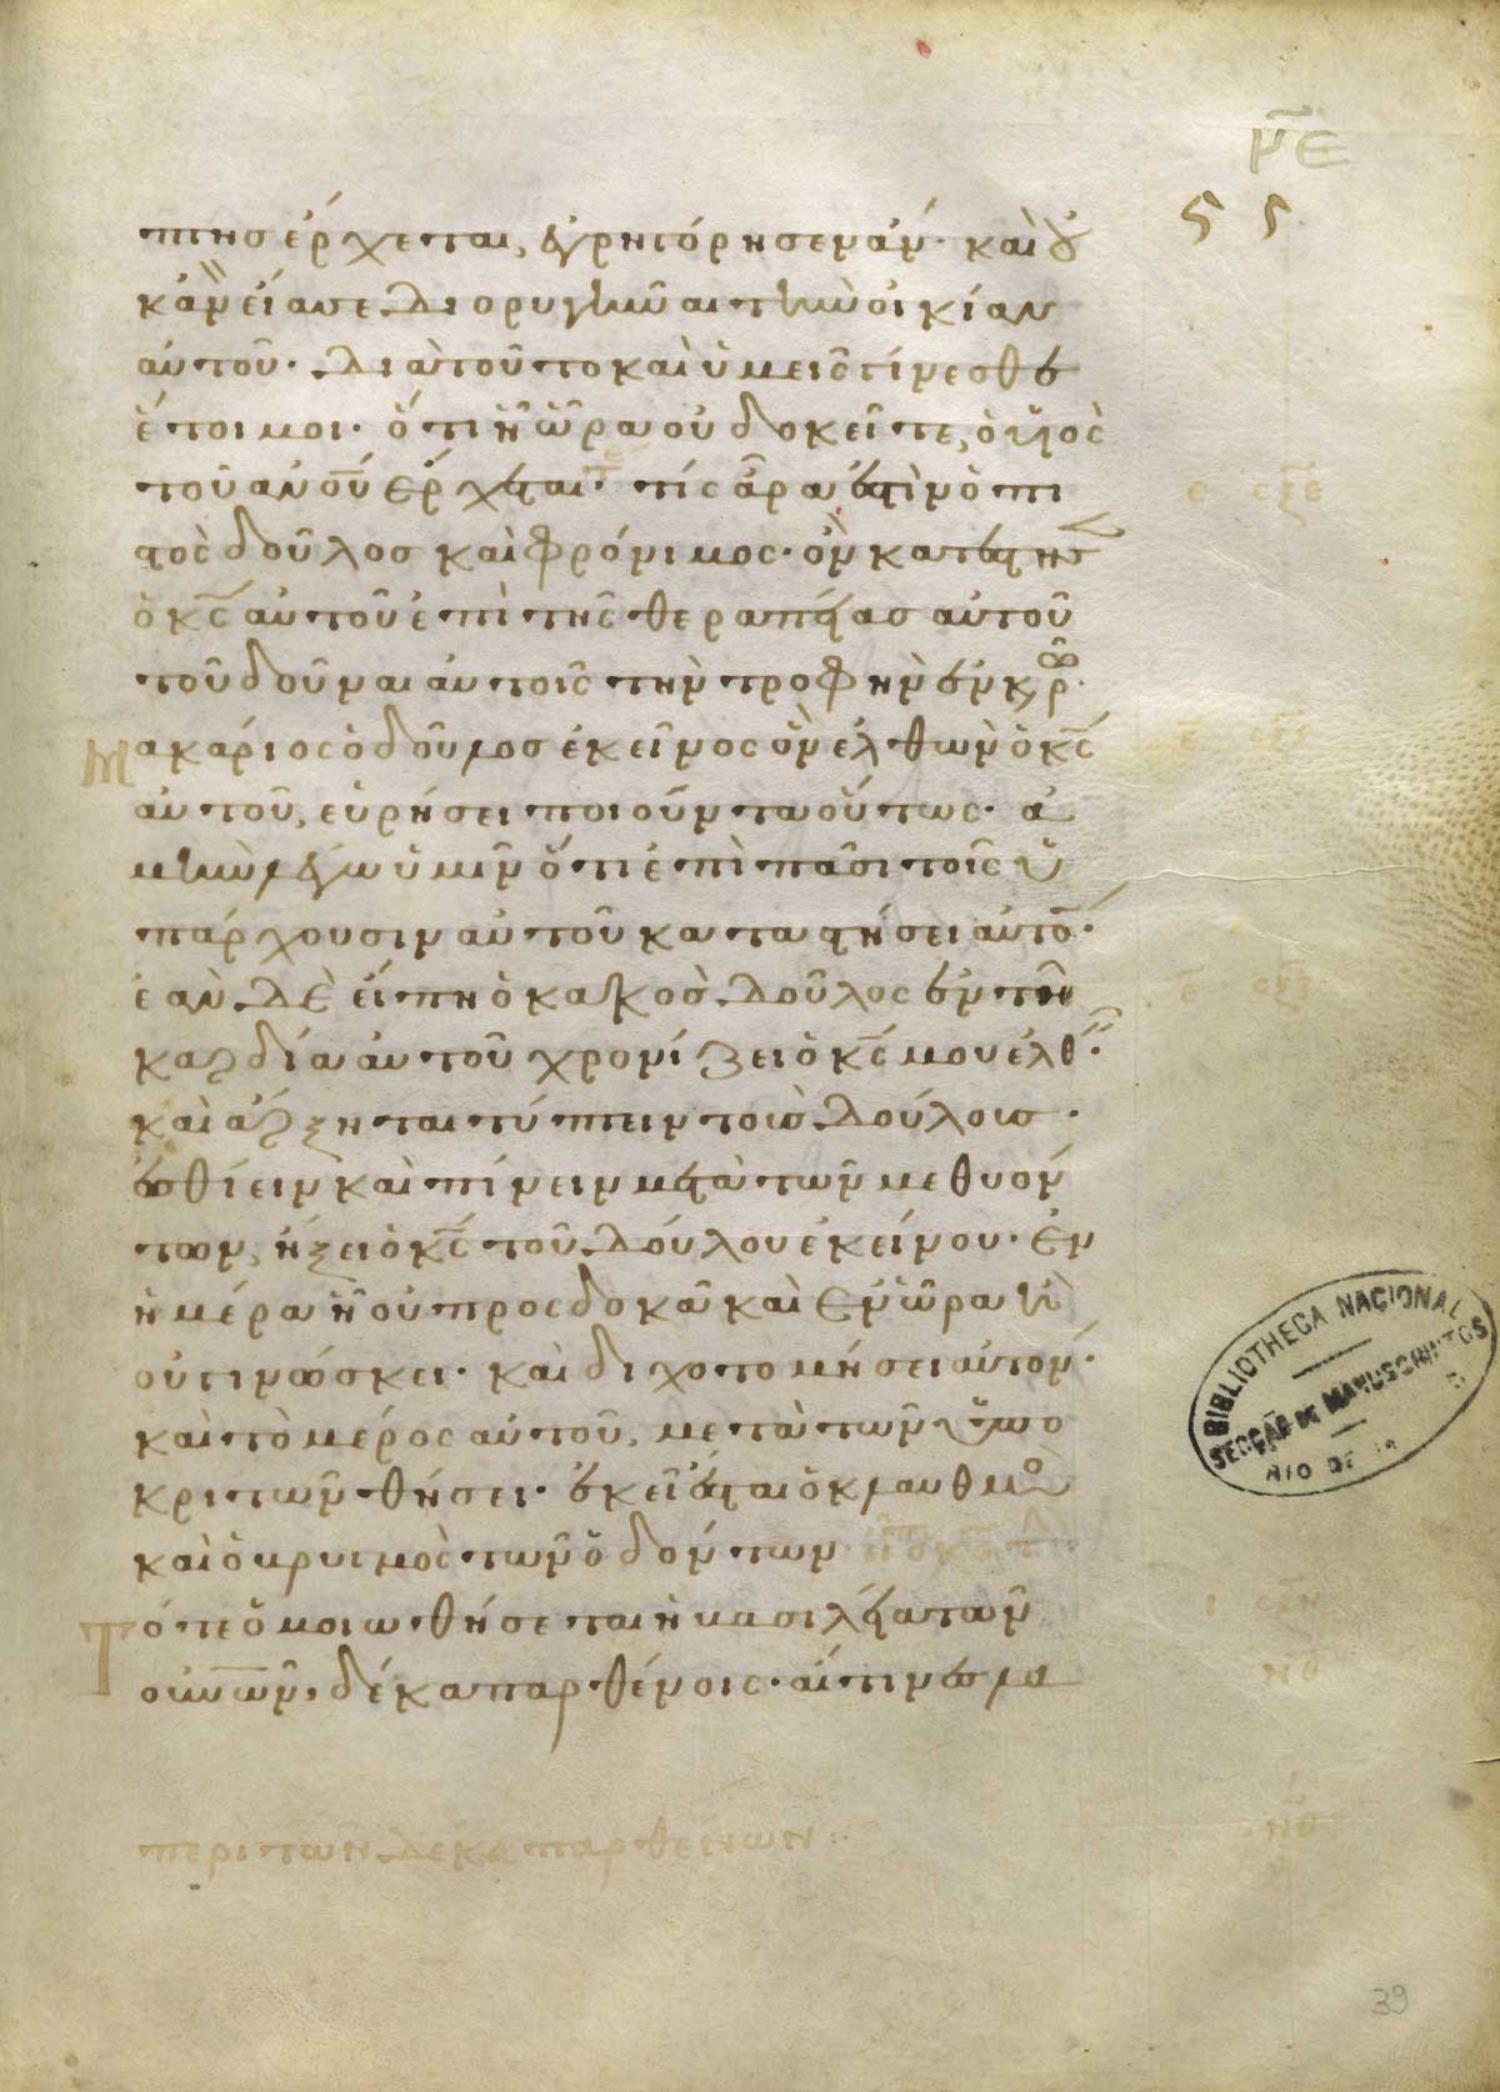 μ̅ε
ϛ ϛ
πτησ ἔρχεται, ἐγρηγόρησεν ἄν· καὶ οὐ
κἂν εἴασε διορυγῆναι τὴν οἰκίαν
αὐτοῦ· διὰ τοῦτο καὶ ὑμεῖς γίνεσθε
ἕτοιμοι· ὅτι ἧ ὥρα οὐ δοκεῖτε, ὁ υἱὸς
τοῦ ανου ἔρχεται· τίς ἄρα ἐστὶν ὁ πι
στὸς δοῦλοσ καὶ φρόνιμος· ὃν κατέστησ
ὁ κς αὐτοῦ ἐπὶ τῆς θεραπείασ αὐτοῦ
τοῦ δοῦναι αὐτοῖς τὴν τροφὴν ἐν κρῶ·
Μακάριος ὁ δοῦλοσ ἐκεῖνος ὃν ἐλθὼν ὁ κς
αὐτοῦ, εὑρήσει ποιοῦντα οὕτως· ἀ
μὴν λέγω ὑμῖν ὅτι ἐπὶ πᾶσι τοῖς ὑ
πάρχουσιν αὐτοῦ καταστήσει αὐτό·
ἐὰν δὲ εἴπη ὁ κακὸσ δοῦλος ἐν τῆ
καρδία αὐτοῦ χρονίζει ὁ κς μου ἐλθ·
καὶ ἄρξηται τύπτειν τοὺσ δούλουσ·
ἐσθίειν καὶ πίνειν μετὰ τῶν μεθυόν
των, ἥξει ὁ κς τοῦ δούλου ἐκείνου· ἐν
ἡμέρα ἧ οὐ προσδοκᾶ καὶ ἐν ὥρα ἧ
οὐ γινώσκει· καὶ διχοτομήσει αὐτόν·
καὶ τὸ μέρος αὐτοῦ, μετὰ τῶν ὑπο
κριτῶν θήσει· ἐκεῖ ἔσται ὁ κλαυθμὸσ
καὶ ὁ βρυγμὸς τῶν ὀδόντων
Τότε ὁμοιωθήσεται ἡ βασιλεία τῶν
ουνων, δέκα παρθένοις· αἵτινεσ λα
περι των δεκα παρθενων:
BIBLIOTHECA NACIONAL
SECÇÃO DE MANUSCRIPTOS
RIO DE
39